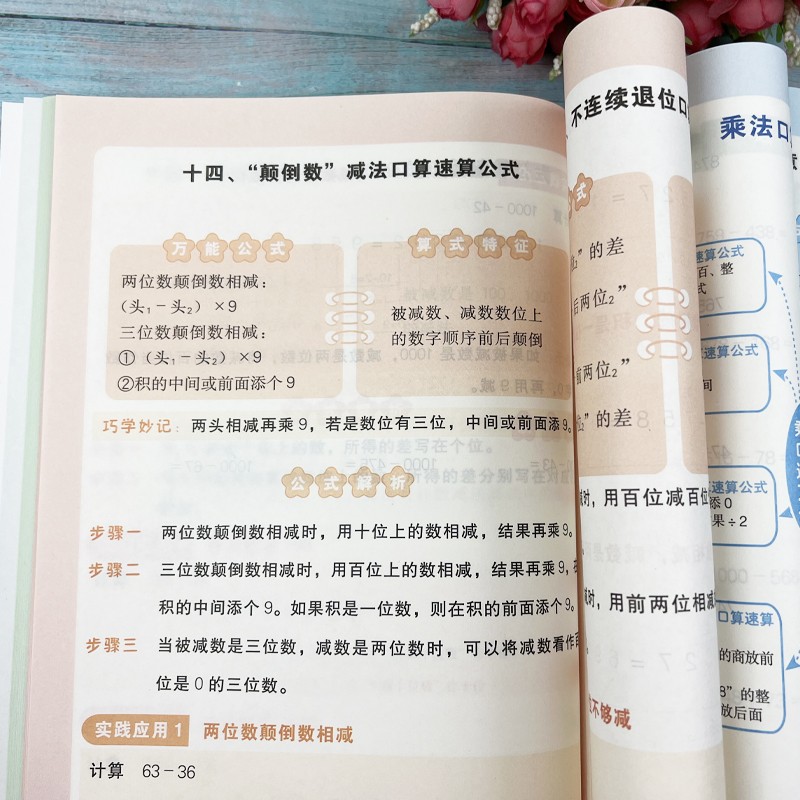 十四、“颠倒数”减法口算速算公式
万能公式
两位数颠倒数相减：
（头₁－头₂）×9
三位数颠倒数相减：
①（头₁－头₂）×9
②积的中间或前面添个9
算式特征
被减数、减数数位上
的数字顺序前后颠倒
巧学妙记：两头相减再乘9，若是数位有三位，中间或前面添9。
公式解析
步骤一 两位数颠倒数相减时，用十位上的数相减，结果再乘9。
步骤二 三位数颠倒数相减时，用百位上的数相减，结果再乘9，
积的中间添个9。如果积是一位数，则在积的前面添个9。
步骤三 当被减数是三位数，减数是两位数时，可以将减数看作
位是0的三位数。
实践应用1 两位数颠倒数相减
计算 63－36
不连续退位口
式
”的差
后两位₂”
前两位₂”
”的差
时，用百位减百位
减时，用前两位相减
不够减
乘法口
速算公式
百、整
式
速算公式
间
速算公式
添0
果÷2
口算速算
的商放前
8”的整
放后面